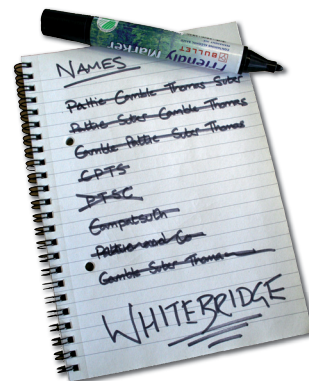 BULLET
Friendly
Marker
NAMES
Pattie Gamble Thomas Suter
Pattie Suter Gamble Thomas
Gamble Pattie Suter Thomas
GPTS
PTSG
Pattie and Co
Gamble Suter Thomas
WHITEBRIDGE